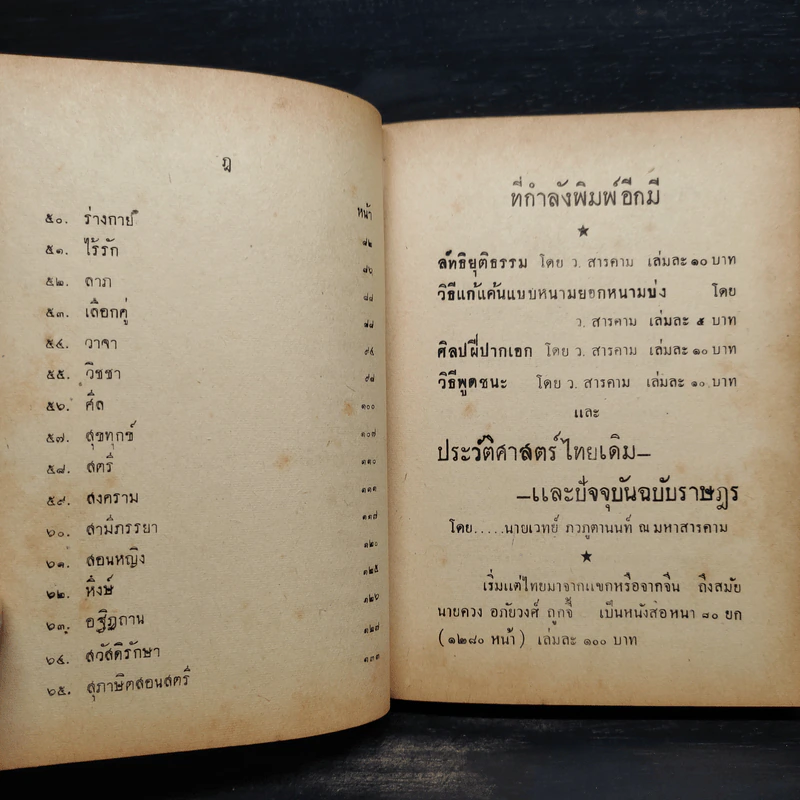 ฎ
หน้า
๕๐. ร่างกาย ๘๒
๕๑. ไร้รัก ๘๖
๕๒. ลาภ ๘๘
๕๓. เลือกคู่
๕๔. วาจา ๙๔
๕๕. วิชชา ๙๘
๕๖. ศีล ๑๐๐
๕๗. สุขทุกข์ ๑๐๗
๕๘. สตรี ๑๑๐
๕๙. สงคราม
๖๐. สามีภรรยา ๑๑๗
๖๑. สอนหญิง
๖๒. หิงษ์ ๑๒๕
๖๓. อธิฏฐาน ๑๒๖
๖๔. สวัสดิรักษา ๑๒๗
๖๕. สุภาษิตสอนสตรี ๑๓๑
ที่กำลังพิมพ์อีกมี
ลัทธิยุติธรรม โดย ว. สารคาม เล่มละ ๑๐ บาท
วิธีแก้แค้นแบบหนามยอกหนามบ่ง โดย
ว. สารคาม เล่มละ ๕ บาท
ศิลปผีปากเอก โดย ว. สารคาม เล่มละ ๑๐ บาท
วิธีพูดชนะ โดย ว. สารคาม เล่มละ ๑๐ บาท
และ
ประวัติศาสตร์ไทยเดิม—
—และปัจจุบันฉบับราษฎร
โดย.....นายเวทย์ ภวภูตานนท์ ณ มหาสารคาม
เริ่มแต่ไทยมาจากแขกหรือจากจีน ถึงสมัย
นายควง อภัยวงศ์ ถูกจี้ เป็นหนังสือหนา ๘๐ ยก
(๑๒๘๐ หน้า) เล่มละ ๑๐๐ บาท